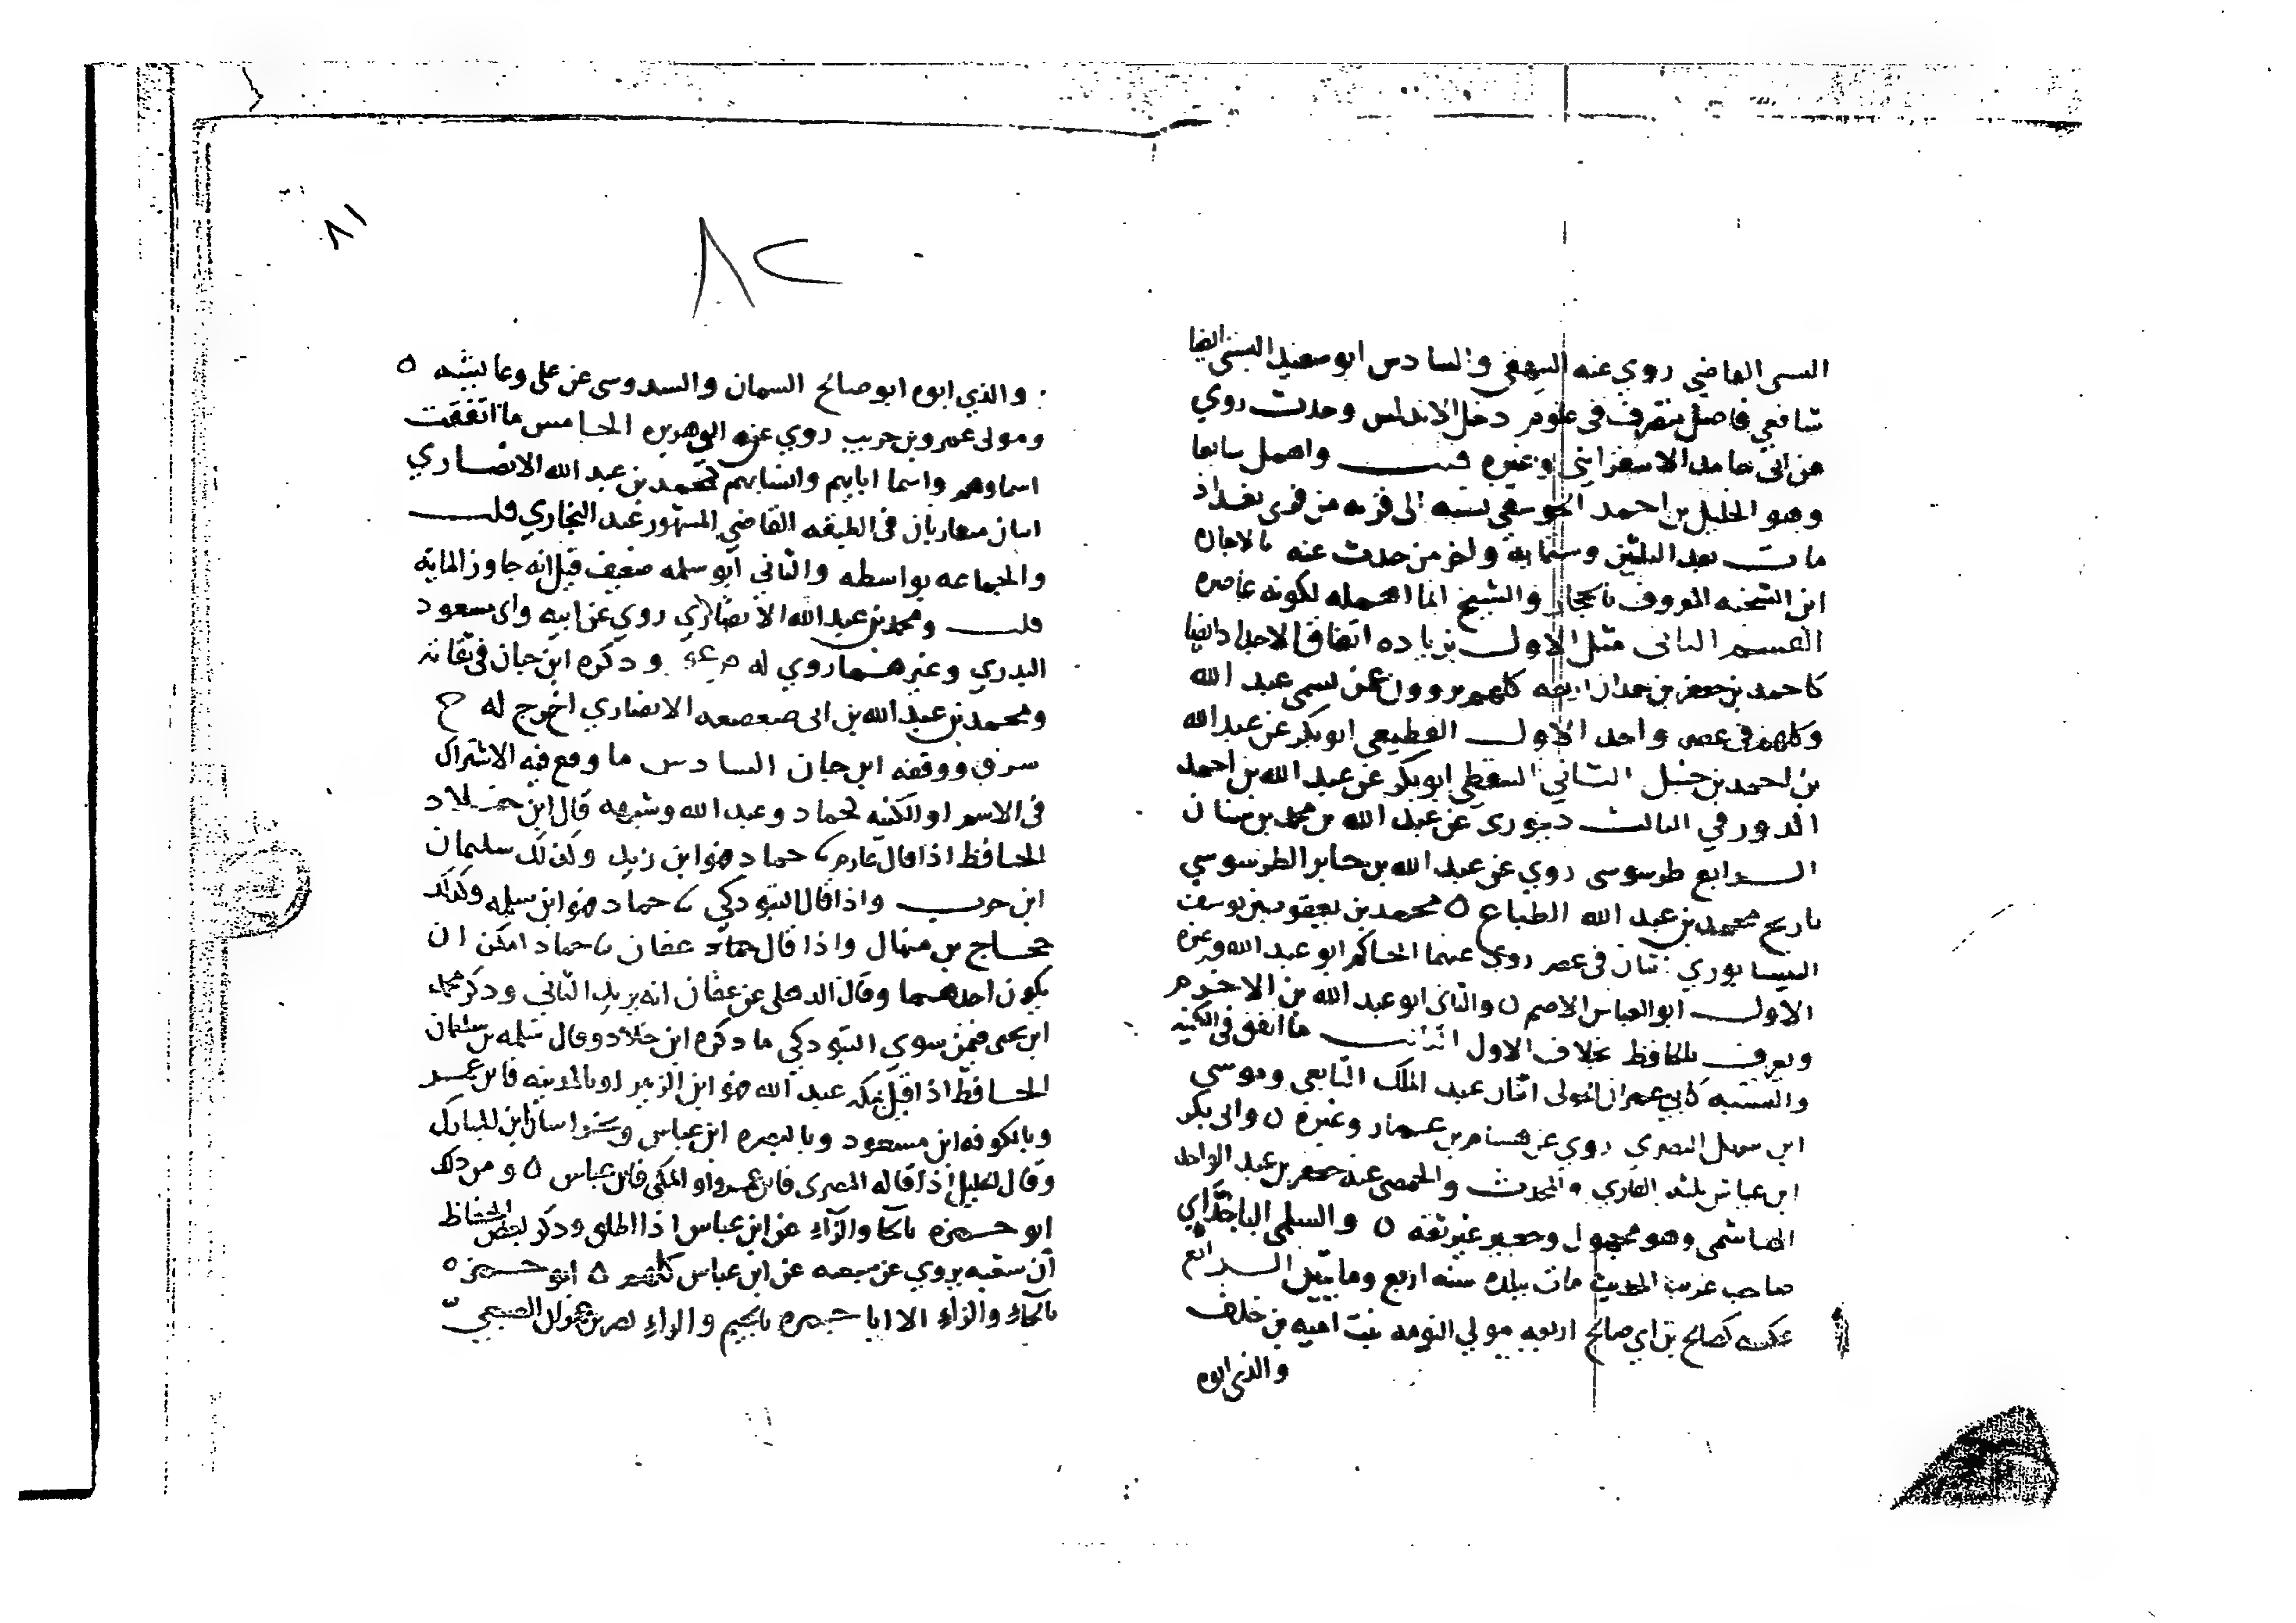 البستي القاضي روي عنه البيهقي والسادس ابو سعيد البستي ايضا
شافعي فاضل متصرف في علوم دخل الاندلس وحدث روي
عن ابي حامد الاسفرايني وغيره قلت واهمل سابعا
وهو الخليل بن احمد الجوسقي نسبه الى قريه من قرى بغداد
مات بعد الثلثين وستمايه واخر من حدث عنه بالاجازه
ابن الشحنه المعروف بالحجار والشيخ انما اهمله لكونه عاصره
القسم الثاني مثل الاول بزياده اتفاق الاجداد ايضا
كاحمد بن جعفر بن حمدان اربعه كلهم يروون عن يسمى عبد الله
وكلهم في عصر واحد الاول القطيعي ابو بكر عن عبد الله
بن احمد بن حنبل الثاني السقطي ابو بكر عن عبد الله بن احمد
الدورقي الثالث دينوري عن عبد الله بن محمد بن سنان
الرابع طرسوسي روي عن عبد الله بن جابر الطرسوسي
تاريخ محمد بن عبد الله الطباع ٥ محمد بن يعقوب بن يوسف
النيسابوري اثنان في عصر روي عنهما الحاكم ابو عبد الله وغيره
الاول ابو العباس الاصم ٥ والثاني ابو عبد الله بن الاخرم
ويعرف بالحافظ بخلاف الاول الثالث ما اتفق في الكنيه
والنسبه كابي عمران الجوني اثنان عبد الملك التابعي وموسى
ابن سهل البصري روي عن هشام بن عمار وغيره ٥ وابي بكر
ابن عياش ثلثه القاري والمحدث والحمصي عنه جعفر بن عبد الواحد
الهاشمي وهو مجهول وجعفر غير ثقه ٥ والسلمي الباجدائي
صاحب غريب الحديث مات ببلده سنه اربع ومايتين الرابع
عكسه كصالح بن ابي صالح اربعه مولي التومه بنت اميه بن خلف
والذي ابوه
٨١
٨٢
والذي ابوه ابو صالح السمان والسدوسي عن علي وعايشه ٥
ومولى عمرو بن حريث روي عن ابي هريره الخامس ما اتفقت
اسماوهم واسما ابايهم وانسابهم كمحمد بن عبد الله الانصاري
اثنان متقاربان في الطبقه القاضي المشهور عند البخاري قلت
والجماعه بواسطه والثاني ابو سلمه ضعيف قيل انه جاوز المايه
قلت ومحمد بن عبد الله الانصاري روي عن ابيه وابي مسعود
البدري وغيرهما روي له م عو وذكره ابن حبان في ثقاته
ومحمد بن عبد الله بن ابي صعصعه الانصاري اخرج له خ
س ق ووثقه ابن حبان السادس ما وقع فيه الاشتراك
في الاسم او الكنيه كحماد وعبد الله وشبهه قال ابن خلاد
الحافظ اذا قال عارم نا حماد فهو ابن زيد وكذلك سليمان
ابن حرب واذا قال التبوذكي نا حماد فهو ابن سلمه وكذلك
حجاج بن منهال واذا قال عفان نا حماد امكن ان
يكون احدهما وقال الذهلي عن عفان انه يريد الثاني وذكر محمد
ابن يحيى فيمن سوي التبوذكي ما ذكره ابن خلاد وقال سلمه بن سليمان
الحافظ اذا قيل بمكه عبد الله فهو ابن الزبير او بالمدينه فابن عمر
وبالكوفه ابن مسعود وبالبصره ابن عباس وبخراسان ابن المبارك
وقال الخليلي اذا قاله المصري فابن عمرو او المكي فابن عباس ٥ ومن ذلك
ابو حمزه بالحا والزاء عن ابن عباس اذا اطلق وذكر بعض الحفاظ
ان شعبه يروي عن سبعه عن ابن عباس كلهم ٥ ابو حمزه ٥
بالحاء والزاء الا ابا جمره بالجيم والراء نصر بن عمران الضبعي